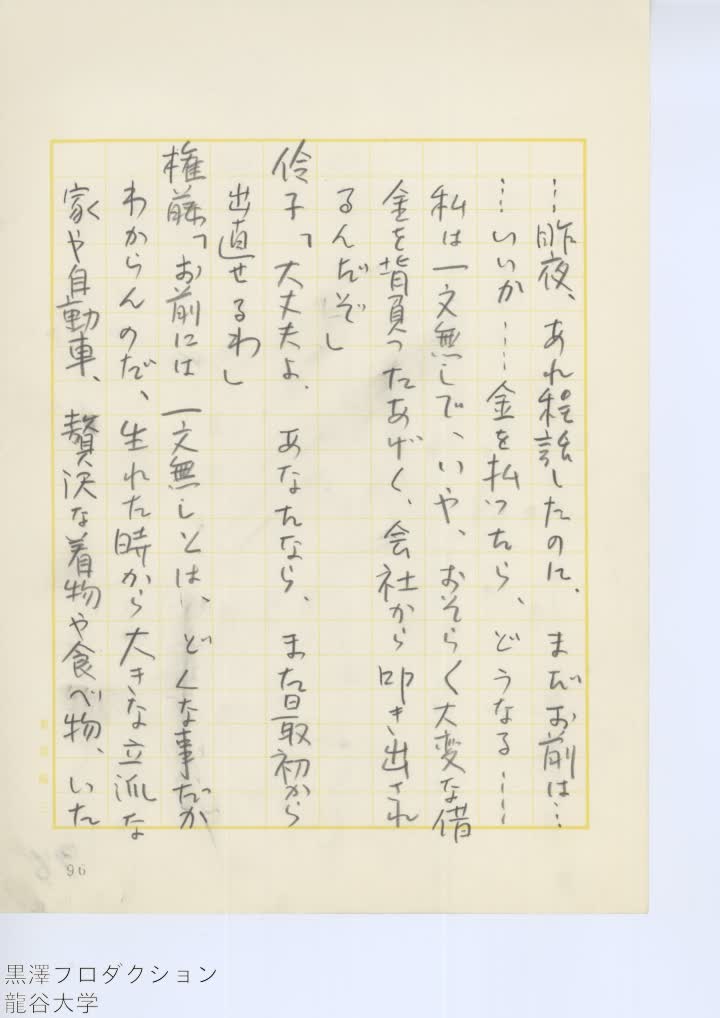 …昨夜、あれ程話したのに、まだお前は…
…いいか……金を払ったら、どうなる……
私は一文無しで、いや、おそらく大変な借
金を背負ったあげく、会社から叩き出され
るんだぞ」
伶子「大丈夫よ、あなたなら、また最初から
出直せるわ」
権藤「お前には一文無しとは、どんな事だか
わからんのだ、生れた時から大きな立派な
家や自動車、贅沢な着物や食べ物、いた
96
黒澤プロダクション
龍谷大学